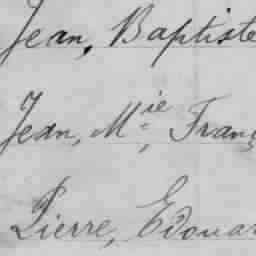 Jean, Baptiste
Jean, M^ie, Franç
Pierre, Edouar